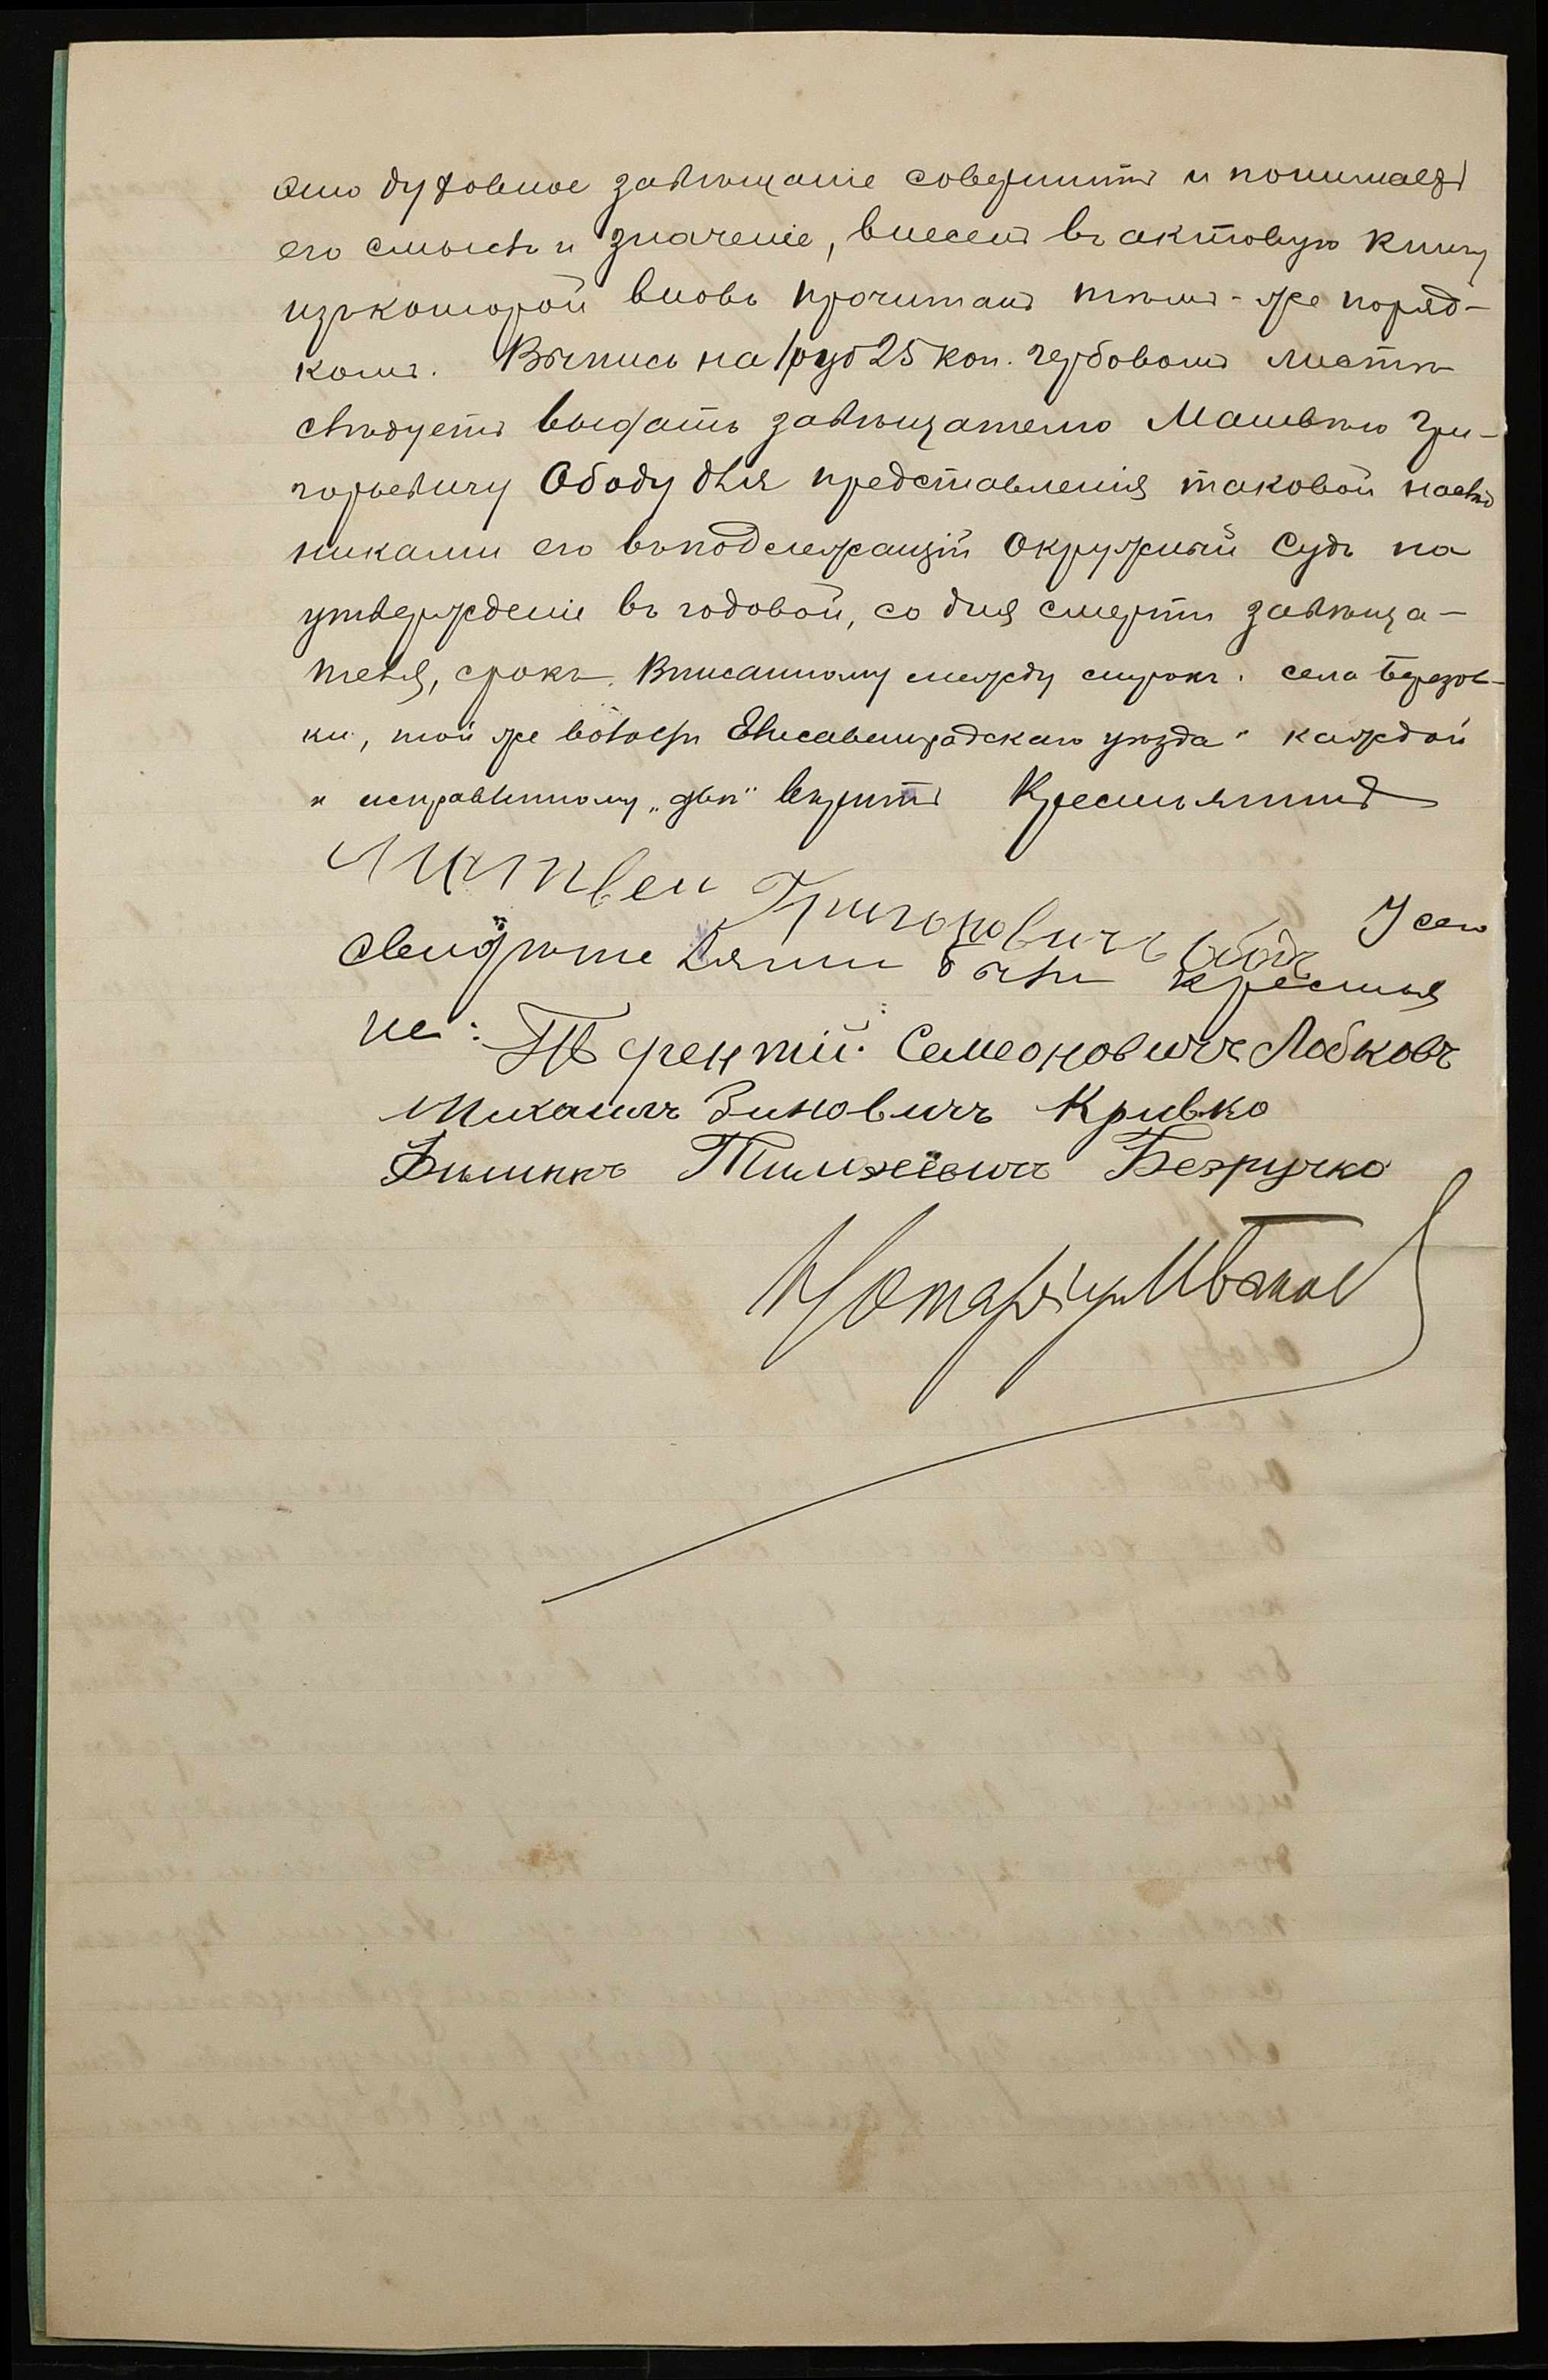 оно духовное завѣщаніе совершить и понимаетъ
его смыслъ и значеніе, внесенъ въ актовую книгу
изъ которой вновь прочитанъ тѣмъ-же поряд-
комъ. Выпись на 1 руб 25 коп. гербовомъ листѣ
слѣдуетъ выдать завѣщателю Матвѣю Гри-
горьевичу Ободу для представленія таковой наслѣд
никами его въ подлежащій Окружный Судъ на
утвержденіе въ годовой, со дня смерти завѣща-
теля, срокъ. Вписанному между строкъ: села Березов-
ки, той же волости Елисаветградскаго уѣзда" каждой
и исправленному „двѣ" вѣрить Крестьянинъ
Матвей Григоровичъ Ободъ У сего
свидѣтелями были крестья
не: Терентій Семеоновичъ Лобковъ
Михаилъ Зиновичъ Кривко
Тимофеевичъ Безручко
Нотаріусъ Ивановъ